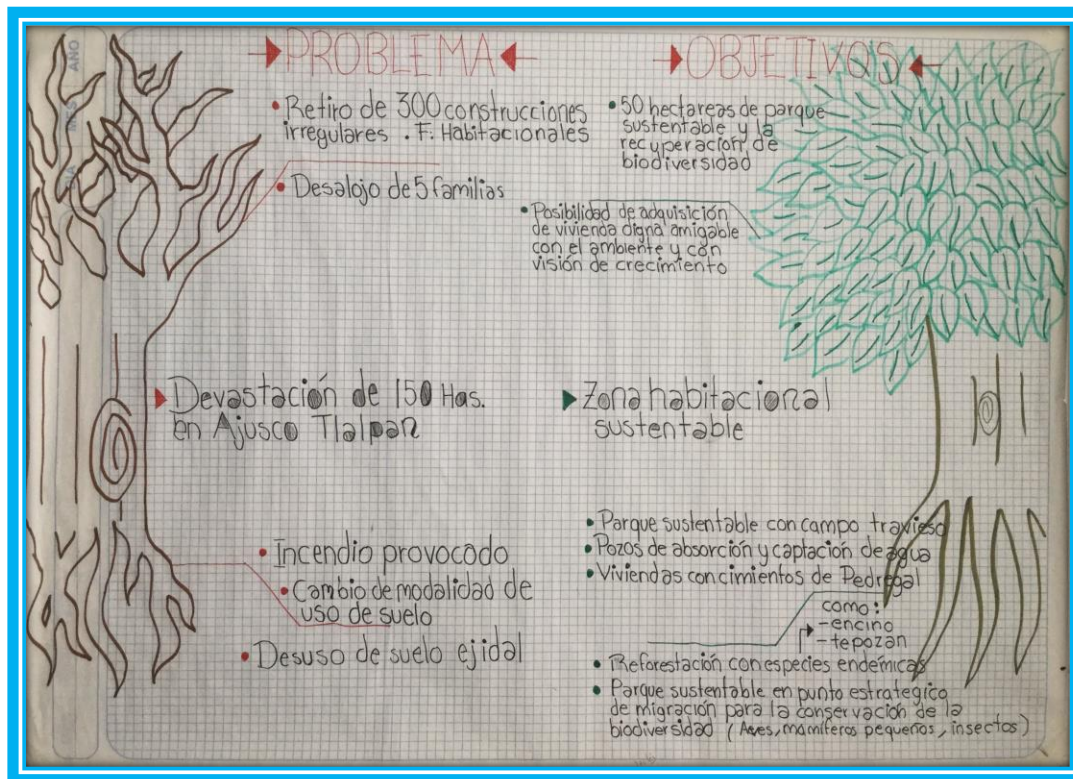 AÑO
MES
DIA
PROBLEMA
• Retiro de 300 construcciones
irregulares . F. Habitacionales
• Desalojo de 5 familias
Devastación de 150 Has.
en Ajusco Tlalpan
• Incendio provocado
• Cambio de modalidad de
uso de suelo
• Desuso de suelo ejidal
OBJETIVOS
• 50 hectareas de parque
sustentable y la
recuperación de
biodiversidad
• Posibilidad de adquisición
de vivienda digna amigable
con el ambiente y con
visión de crecimiento
Zona habitacional
sustentable
• Parque sustentable con campo travieso
• Pozos de absorción y captación de agua
• Viviendas con cimientos de Pedregal
como:
-encino
-tepozan
• Reforestación con especies endémicas
• Parque sustentable en punto estrategico
de migración para la conservación de la
biodiversidad (Aves, mamíferos pequeños, insectos)